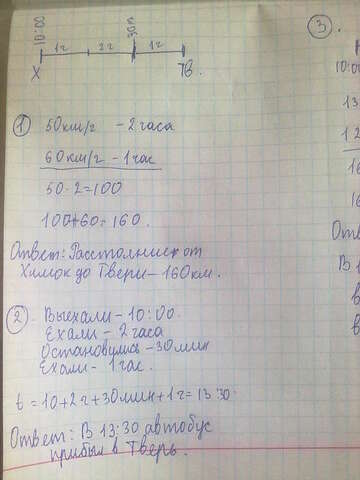 10:00
30м
1г 2г 1г
Х Тв.
3.
1
50км/г - 2 часа
60км/г - 1 час
50·2=100
100+60=160.
Ответ: Расстояние от
Химок до Твери - 160 км.
2
Выехали - 10:00.
Ехали - 2 часа
Остановились - 30 мин
Ехали - 1 час.
t = 10+2г+30мин+1г = 13 30
Ответ: В 13:30 автобус
прибыл в Тверь.
10:00
13
12
16
16
Отв
В 1
в
в